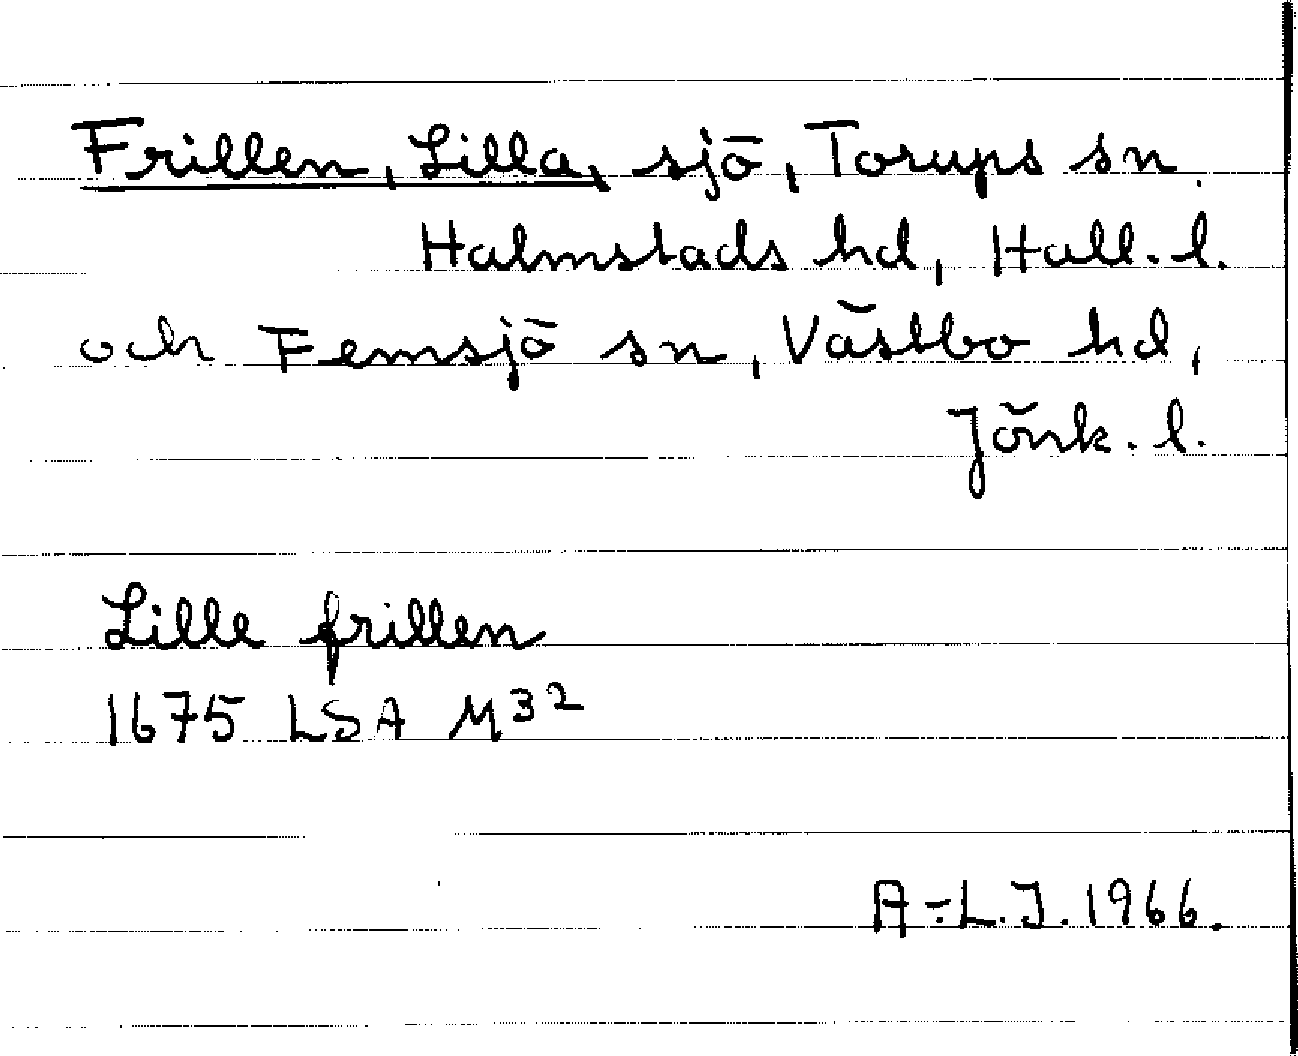 Frillen, Lilla, sjö, Torups sn.
Halmstads hd, Hall. l.
och Femsjö sn, Västbo hd,
Jönk. l.
Lille frillen
1675 LSA M32
A-L.J. 1966.